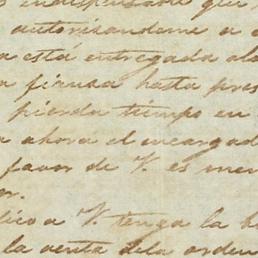 indispensable que
autorizandome a
a está entregada al
a firma hasta pres
pierda tiempo en
a ahora el encargad
favor de V. es men
or.
lico a V. tenga la b
la venta dela orden